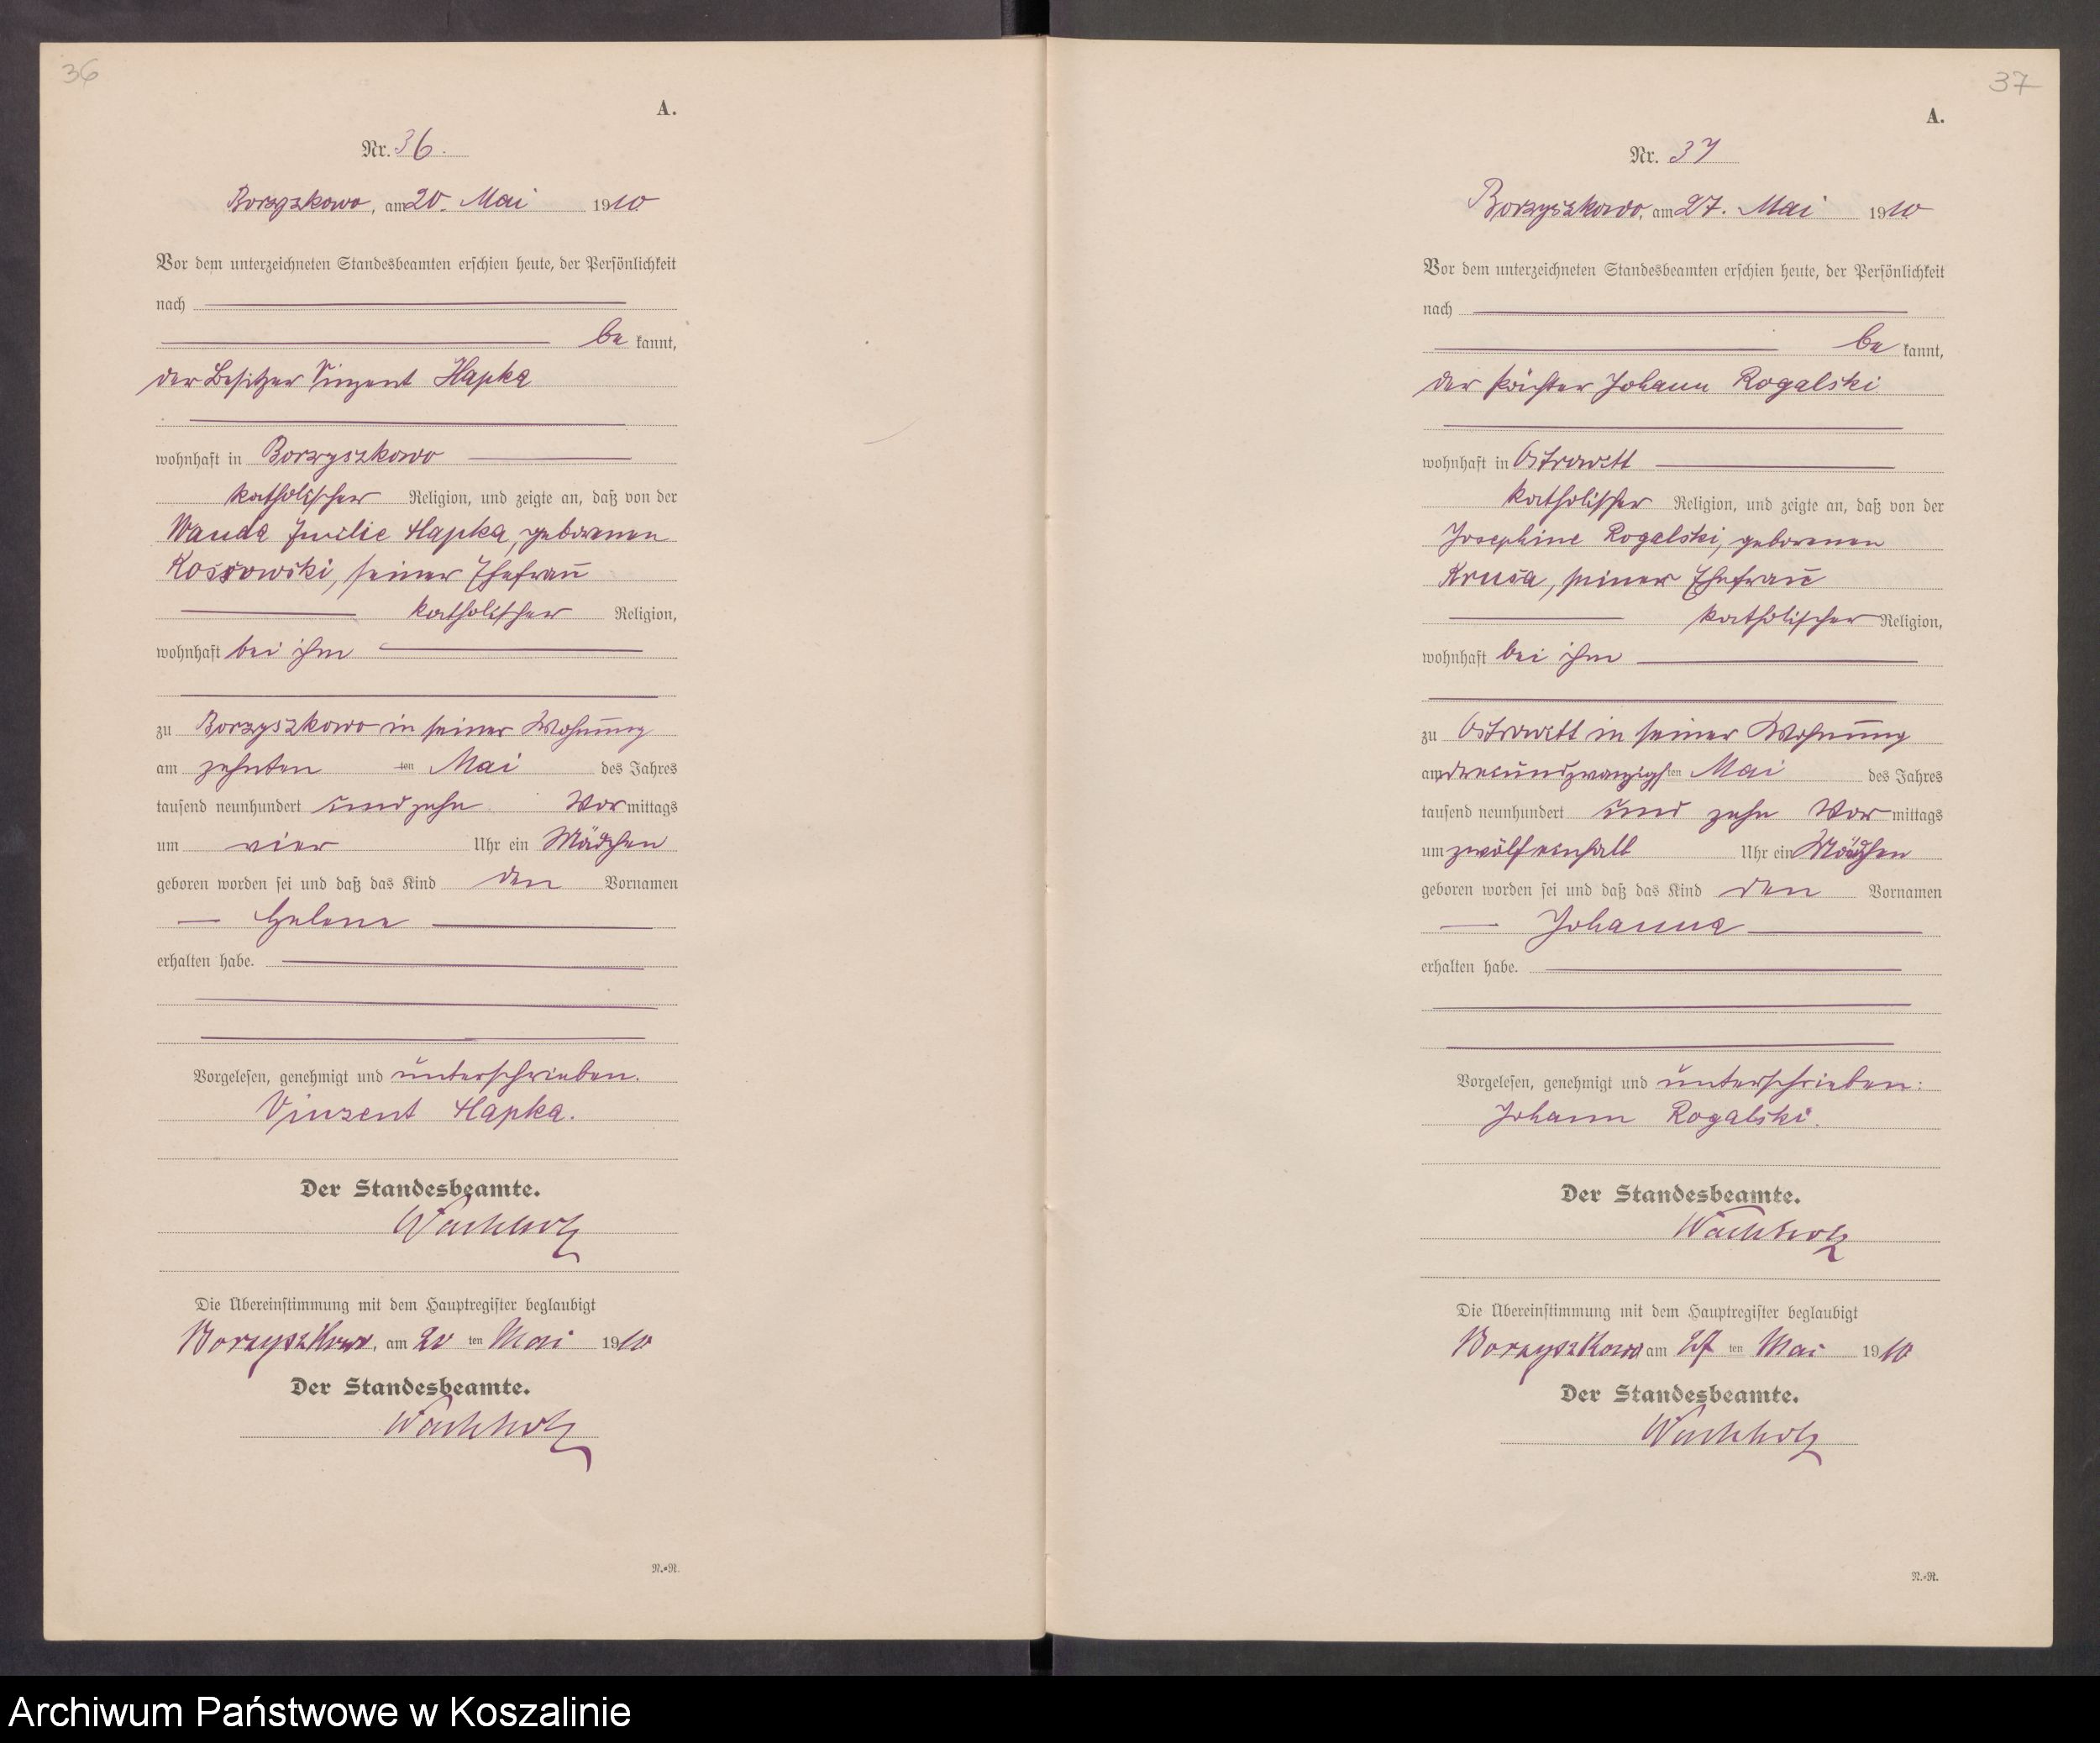 36
A.
Nr. 36.
Borzyszkowo, am 20. Mai 1910
Vor dem unterzeichneten Standesbeamten erschien heute, der Persönlichkeit
nach
be kannt,
der Besitzer Vinzent Hapka
wohnhaft in Borzyszkowo
katholischer Religion, und zeigte an, daß von der
Wanda Emilie Hapka, geborenen
Kossowski, seiner Ehefrau
katholischer Religion,
wohnhaft bei ihm
zu Borzyszkowo in seiner Wohnung
am zehnten ten Mai des Jahres
tausend neunhundert und zehn Vor mittags
um vier Uhr ein Mädchen
geboren worden sei und daß das Kind den Vornamen
Helene
erhalten habe.
Vorgelesen, genehmigt und unterschrieben.
Vinzent Hapka.
Der Standesbeamte.
Wachholz
Die Übereinstimmung mit dem Hauptregister beglaubigt
Borzyszkowo, am 20 ten Mai 1910
Der Standesbeamte.
Wachholz
N.=N.
37
A.
Nr. 37
Borzyszkowo, am 27. Mai 1910
Vor dem unterzeichneten Standesbeamten erschien heute, der Persönlichkeit
nach
be kannt,
der Johann Rogalski
wohnhaft in Ostrowitt
katholischer Religion, und zeigte an, daß von der
Josephine Rogalski, geborenen
Krusa, seiner Ehefrau
katholischer Religion,
wohnhaft bei ihm
zu Ostrowitt in seiner Wohnung
am dreiundzwanzigsten Mai des Jahres
tausend neunhundert und zehn Vor mittags
um zwölfeinhalb Uhr ein Mädchen
geboren worden sei und daß das Kind den Vornamen
Johanna
erhalten habe.
Vorgelesen, genehmigt und unterschrieben:
Johann Rogalski.
Der Standesbeamte.
Wachholz
Die Übereinstimmung mit dem Hauptregister beglaubigt
Borzyszkowo am 27 ten Mai 1910
Der Standesbeamte.
Wachholz
N.=N.
Archiwum Państwowe w Koszalinie